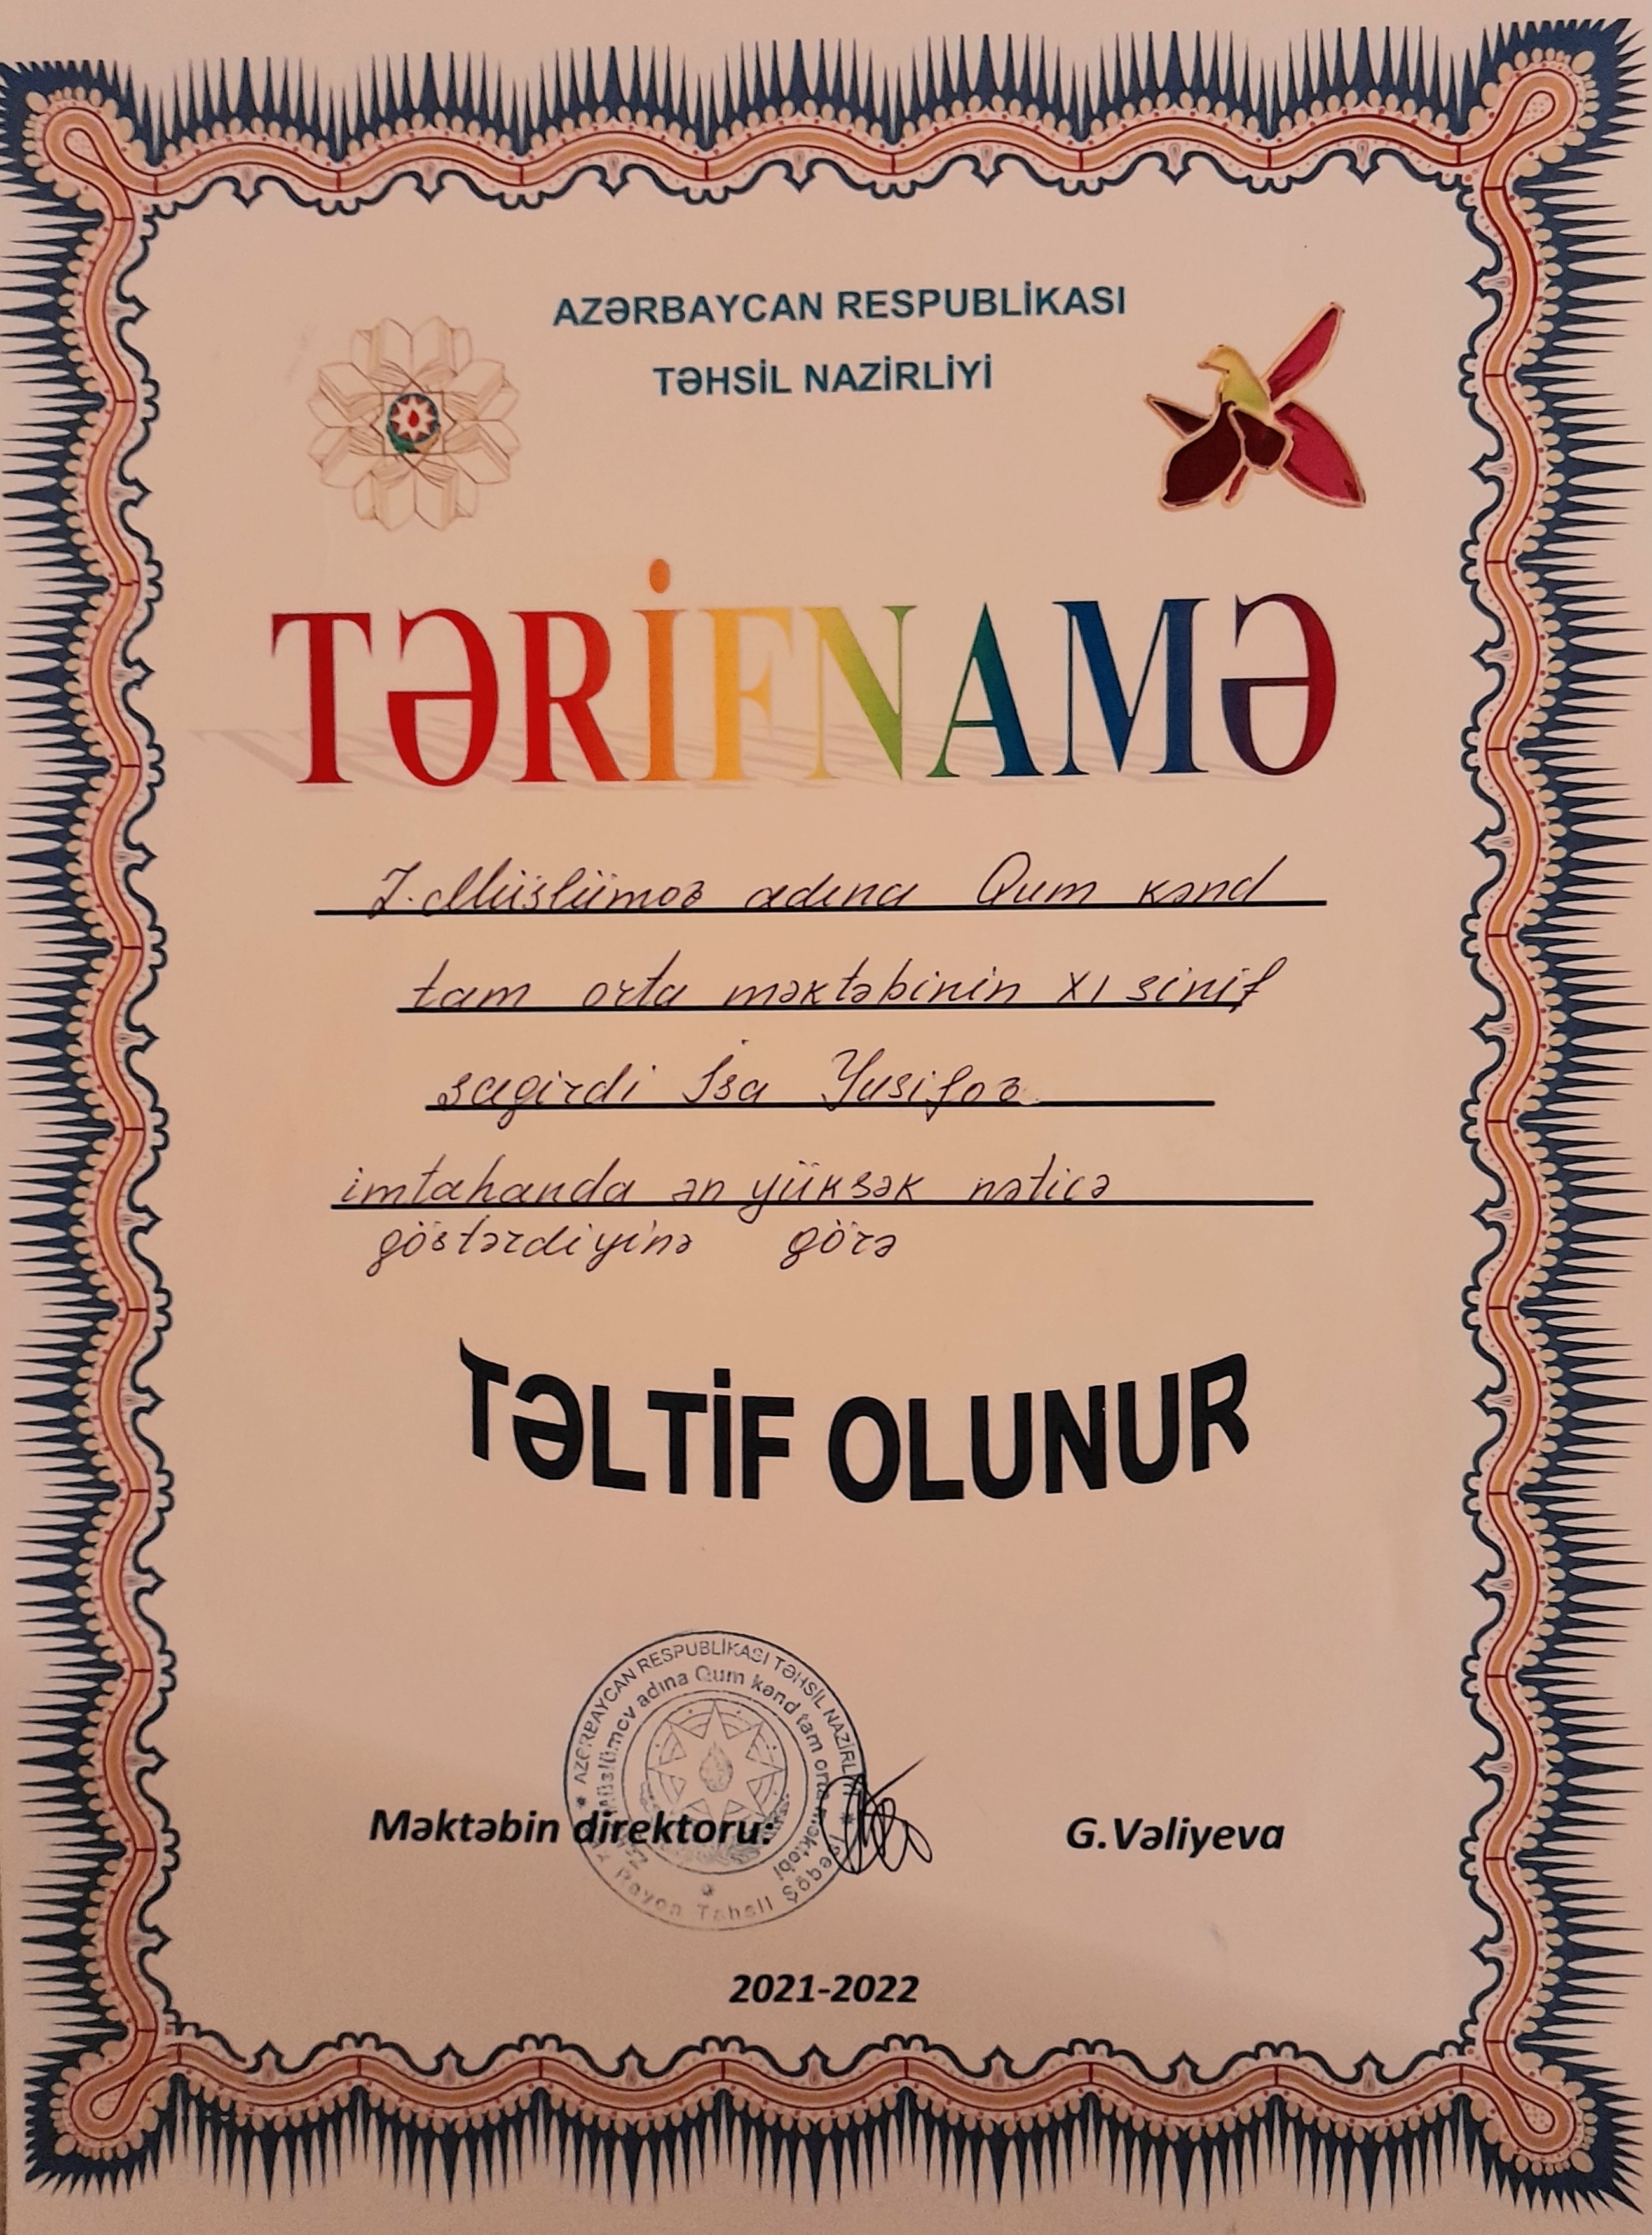 AZƏRBAYCAN RESPUBLİKASI
TƏHSİL NAZİRLİYİ
TƏRİFNAMƏ
Z. Müslümov adına Qum kənd
tam orta məktəbinin XI sinif
şagirdi İsa Yusifov
imtahanda ən yüksək nəticə
göstərdiyinə görə
TƏLTİF OLUNUR
AZƏRBAYCAN RESPUBLİKASI TƏHSİL NAZİRLİYİ
Müslümov adına Qum kənd tam orta məktəbi
Rayon Təhsil Şöbəsi
Məktəbin direktoru:
G.Vəliyeva
2021-2022